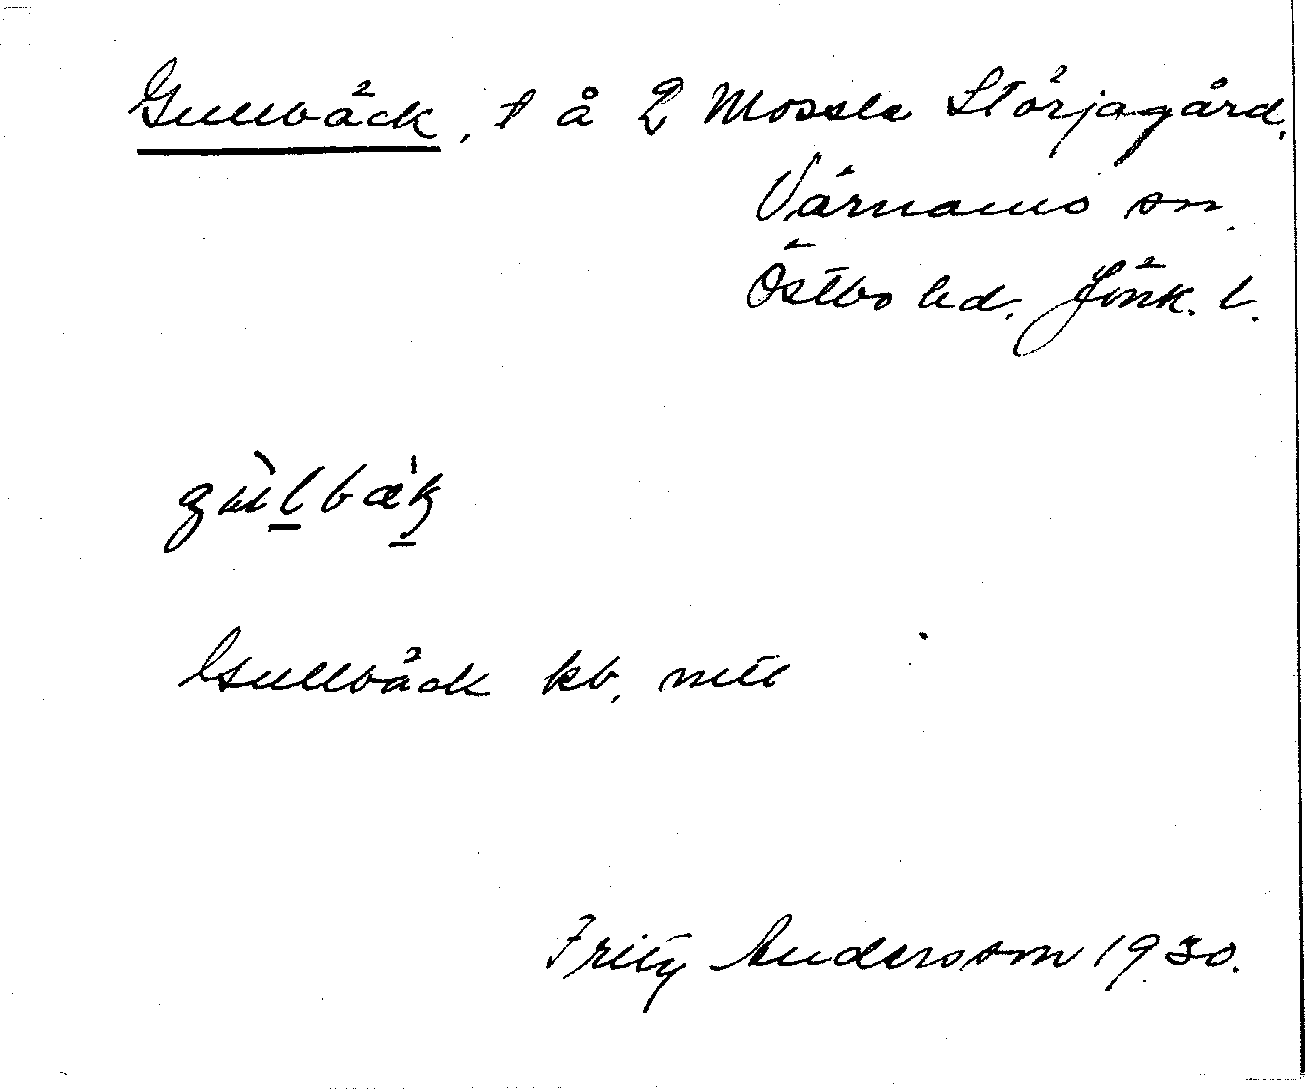 Gullbäck, t å 2 Mossle Störjagård.
Värnamo sn.
Östbo hd. Jönk. l.
gu̇̀lbæ̍k
Gullbäck kb, mtl
Frity Andersson 1930.